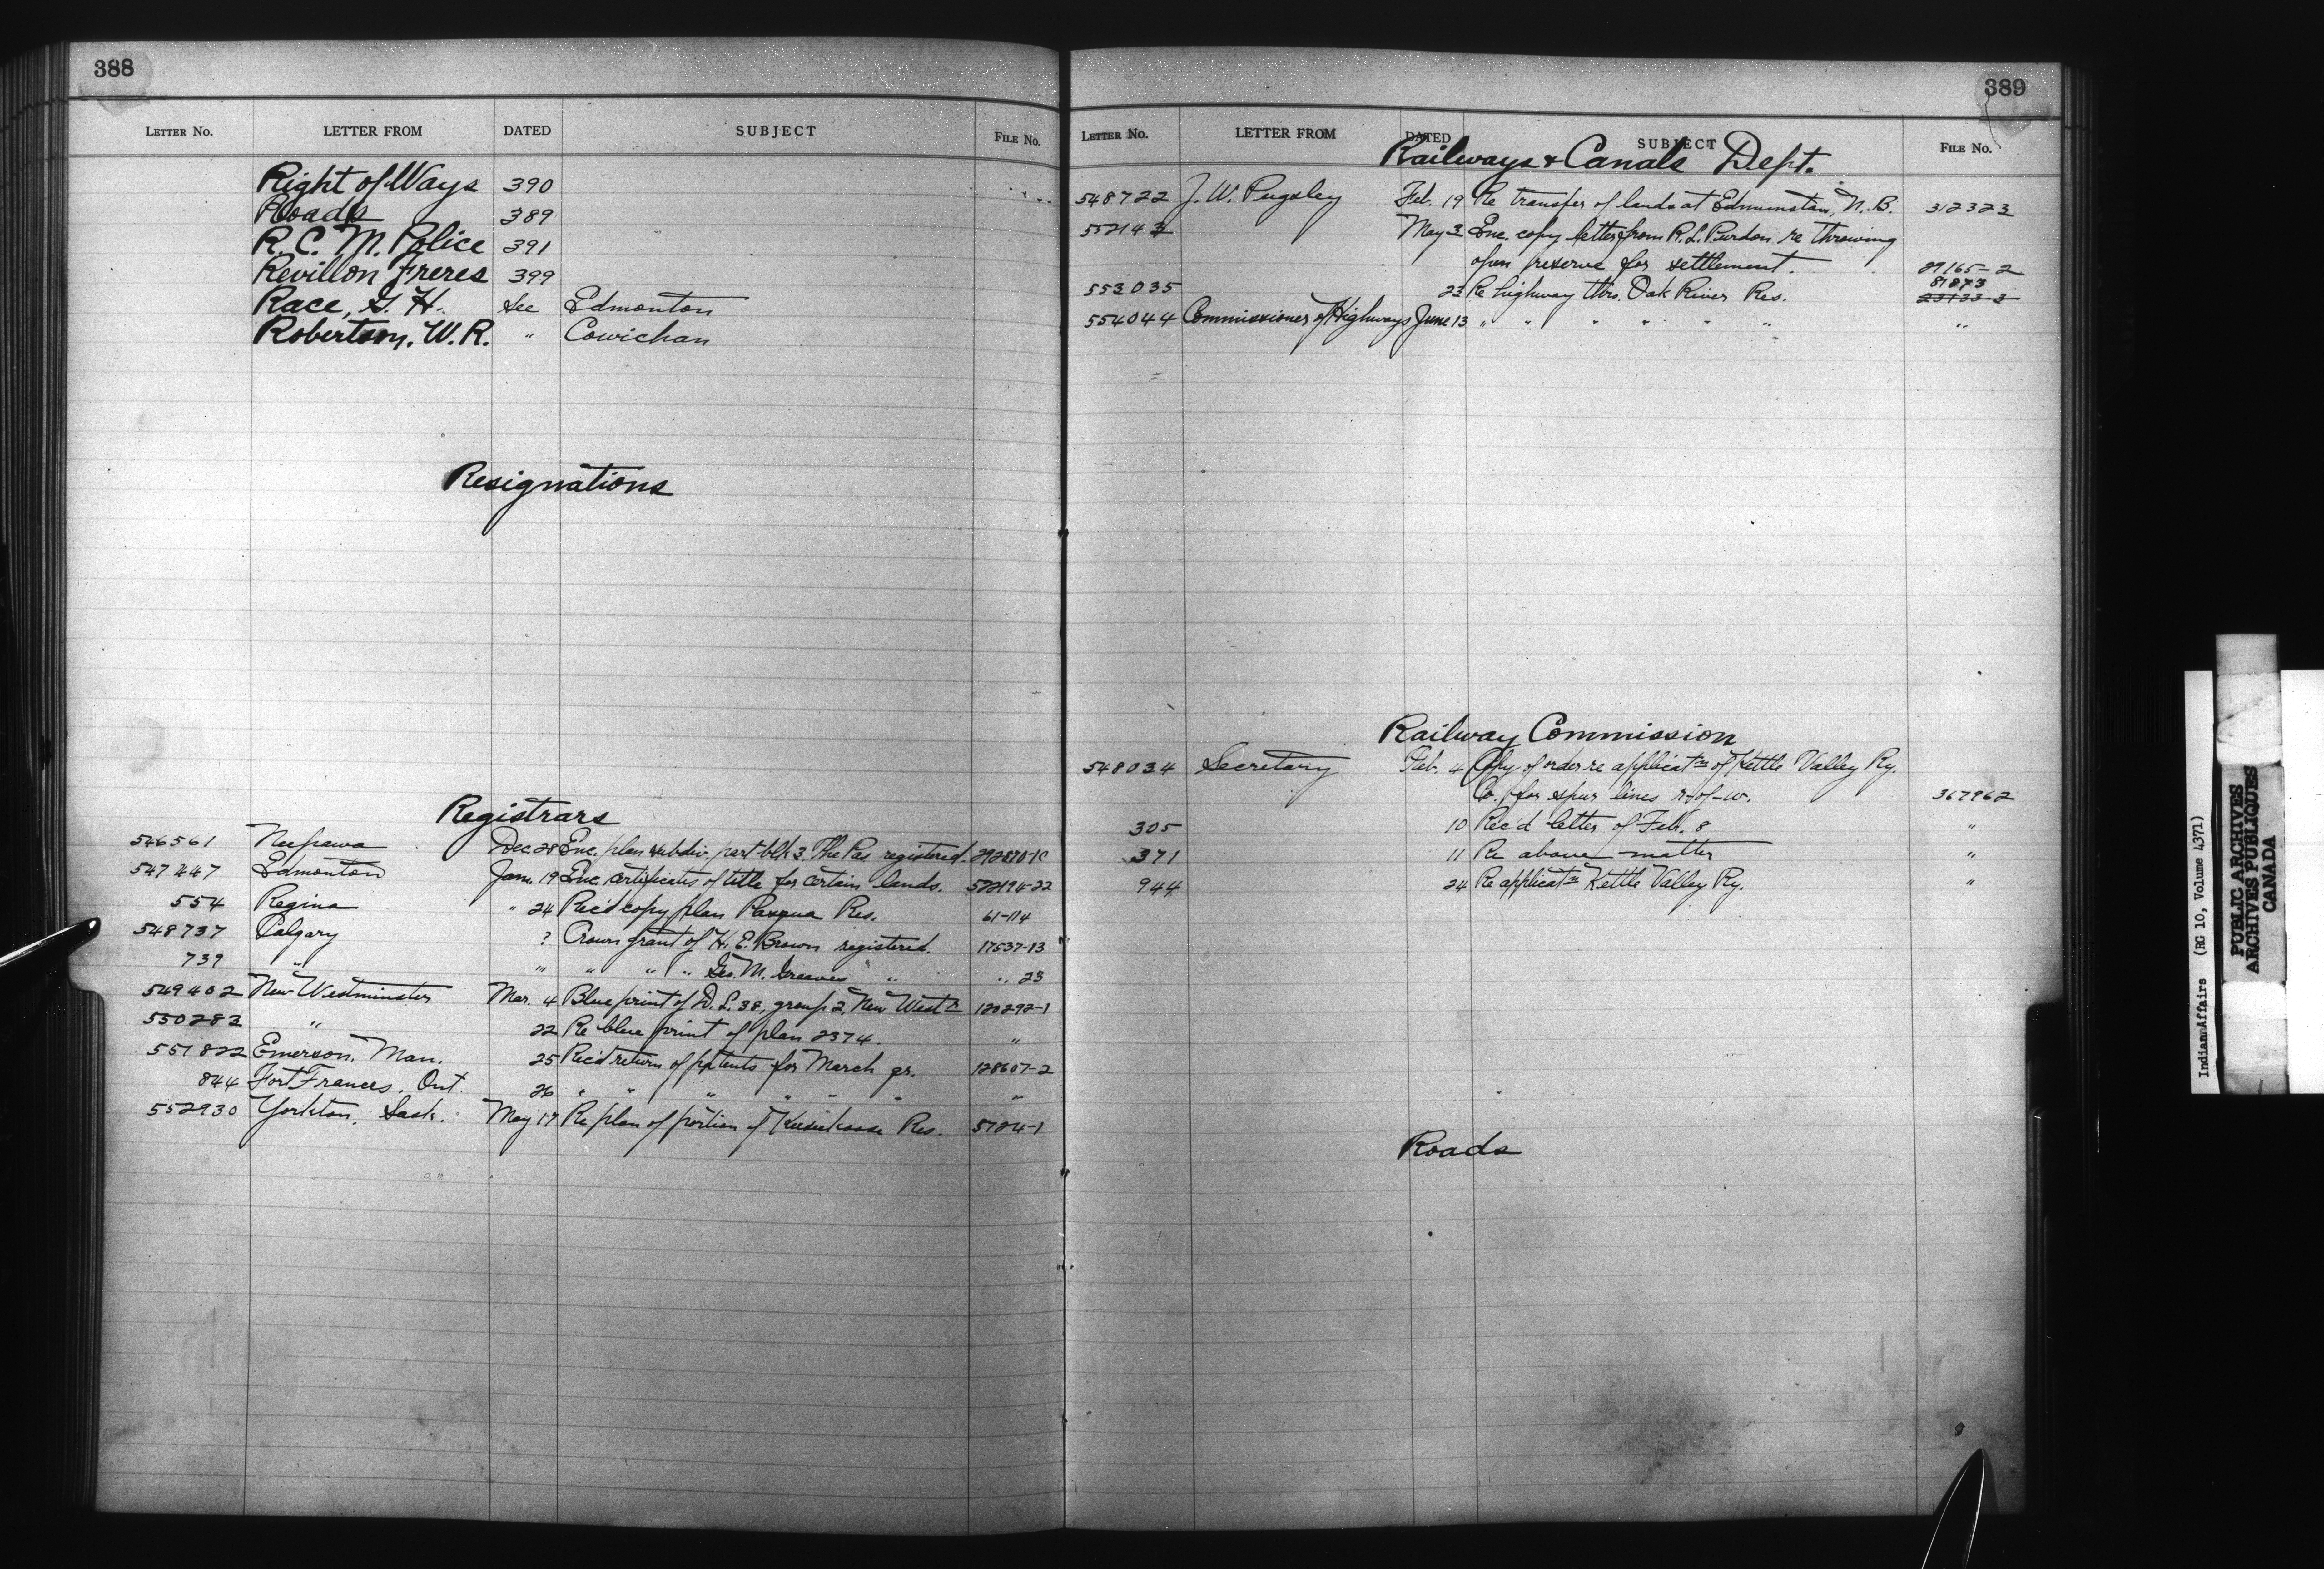 388
LETTER No. LETTER FROM DATED SUBJECT FILE No.
Right of Ways 390
Roads 389
R. C. M. Police 391
Revillon Freres 399
Race, G. H. see Edmonton
Robertson, W. R. " Cowichan
Resignations
Registrars
546561 Neepawa Dec. 28 Enc. plan subdiv. part blk 3. The Pas registered.
547447 Edmonton Jan. 19 Enc. certificates of title for certain lands. 572194-22
554 Regina " 24 Rec'd copy plan Pasqua Res. 61-114
548737 Calgary ? Crown grant of H. E. Brown registered. 17537-13
739 " " " " " Geo. M. Greaves " " 23
549402 New Westminster Mar. 4 Blue print of D. L. 38, group 2, New West'r 120292-1
550283 " 22 Re blue print of plan 2374. "
551822 Emerson, Man. 25 Rec'd return of patents for March qr. 128607-2
844 Fort Frances, Ont. 26 " " " " " " "
552930 Yorkton, Sask. May 17 Re plan of portion of Res. 5784-1
389
LETTER No. LETTER FROM DATED SUBJECT FILE No.
Railways & Canals Dept.
548722 J. W. Pugsley Feb. 19 Re transfer of lands at Edmunston, N. B. 312323
552143 May 3 Enc. copy letter from R. L. Purdon re throwing
open reserve for settlement. 29165-2
553035 23 Re highway thro. Oak River Res. 81873
23133-3
554044 Commissioner of Highways June 13 " " " " " " "
Railway Commission
548034 Secretary Feb. 4 Copy of order re applicat'n of Kettle Valley Ry.
Co. for spur lines r-of-w. 367962
305 10 Rec'd letter of Feb. 8 "
371 11 Re above matter "
944 24 Re applicat'n Kettle Valley Ry. "
Roads
Indian Affairs (RG 10, Volume 4371)
PUBLIC ARCHIVES
ARCHIVES PUBLIQUES
CANADA